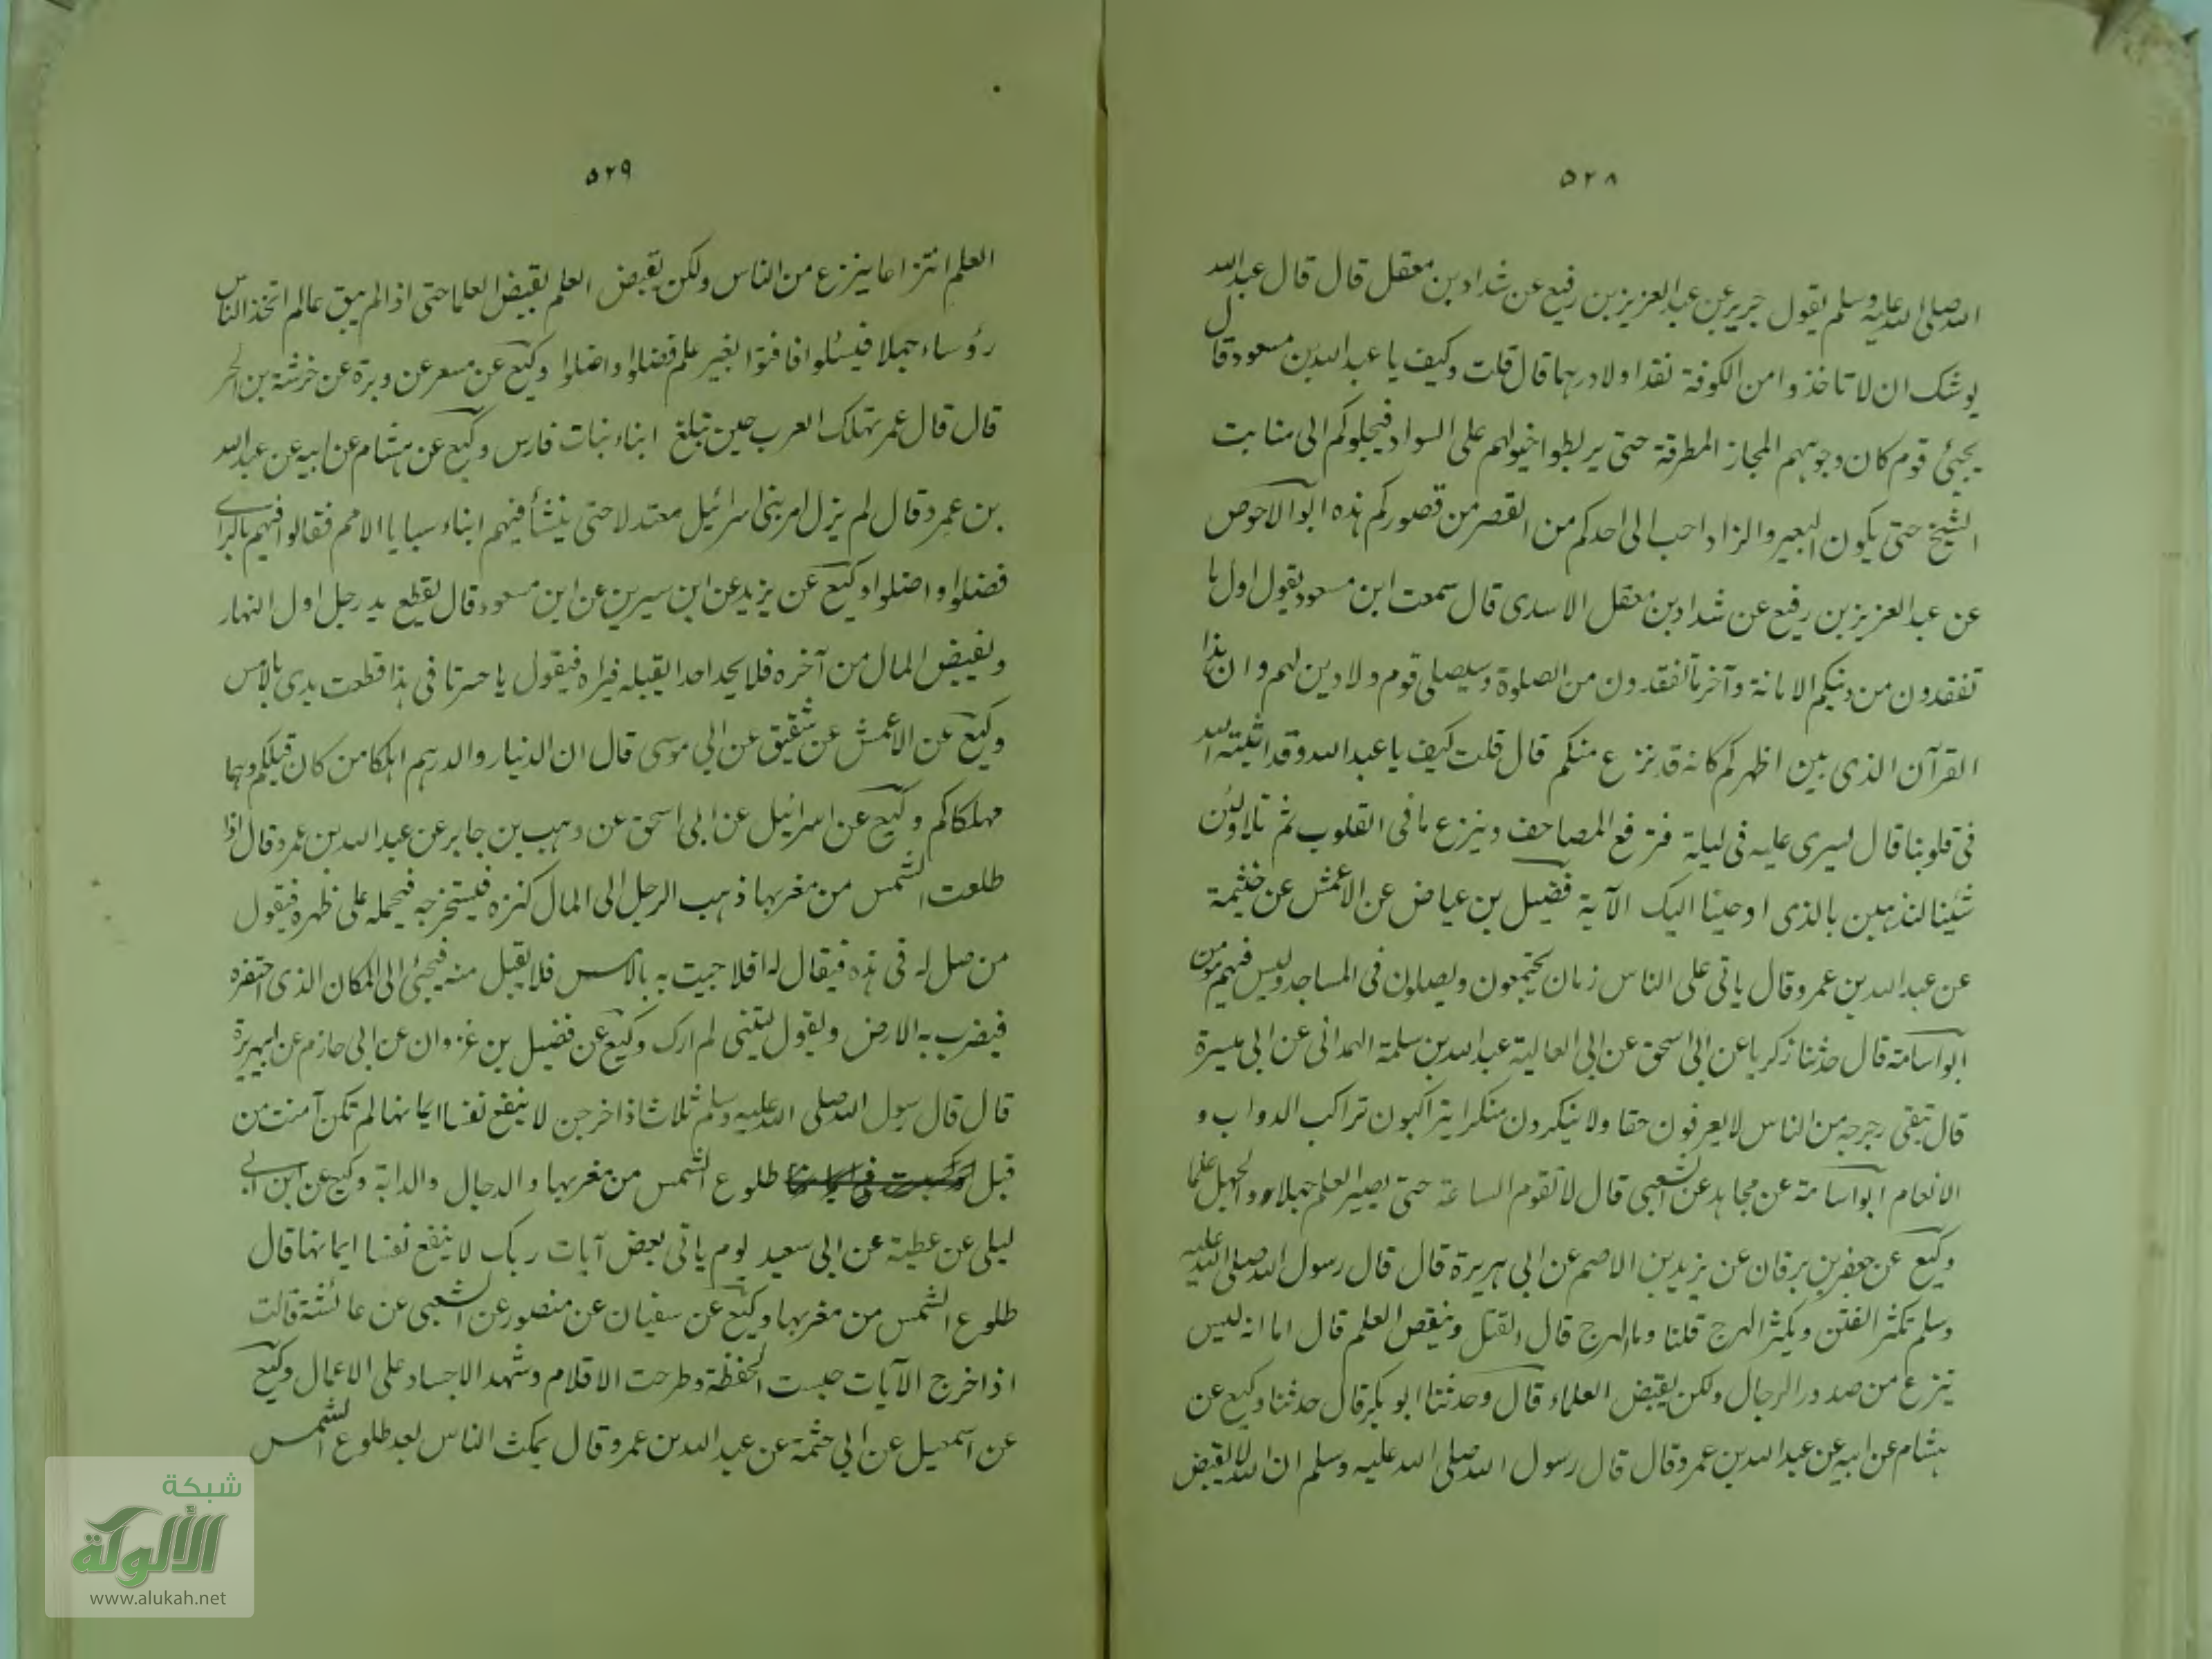 ٥٢٨
الله صلى الله عليه وسلم يقول جرير عن عبد العزيز بن رفيع عن شداد بن معقل قال قال عبد الله
يوشك ان لا تاخذوا من الكوفة نقدا ولا درهما قال قلت وكيف يا عبد الله بن مسعود قال
يجيئ قوم كان وجوههم المجاز المطرقة حتى يربطوا خيولهم على السواد فيجلوكم الى منابت
الشيخ حتى يكون البعير والزاد احب الى احدكم من القصر من قصوركم هذه ابو الاحوص
عن عبد العزيز بن رفيع عن شداد بن معقل الاسدى قال سمعت ابن مسعود يقول اول ما
تفقدون من دينكم الامانة وآخر ما تفقدون من الصلوة وسيصلى قوم ولا دين لهم وان هذا
القرآن الذى بين اظهركم كانه قد نزع منكم قال قلت كيف يا عبد الله وقد اثبته الله
فى قلوبنا قال ليسرى عليه فى ليلة فترفع المصاحف وينزع ما فى القلوب ثم تلا ولئن
شئنا لنذهبن بالذى اوحينا اليك الآية فضيل بن عياض عن الاعمش عن خيثمة
عن عبد الله بن عمرو قال ياتى على الناس زمان يجتمعون ويصلون فى المساجد وليس فيهم مومن
ابو اسامة قال حدثنا زكريا عن ابى اسحق عن ابى العالية عبد الله بن سلمة الهمدانى عن ابى ميسرة
قال تبقى رجرجه من الناس لا يعرفون حقا ولا ينكرون منكرا يتراكبون تراكب الدواب و
الانعام ابو اسامة عن مجاهد عن الشعبى قال لا تقوم الساعة حتى يصير العلم جهلا والجهل علما
وكيع عن جعفر بن برقان عن يزيد بن الاصم عن ابى هريرة قال قال رسول الله صلى الله عليه
وسلم تكثر الفتن ويكثر الهرج قلنا وما الهرج قال القتل وينقص العلم قال اما انه ليس
ينزع من صدور الرجال ولكن يقبض العلماء قال وحدثنا ابو بكر قال حدثنا وكيع عن
هشام عن ابيه عن عبد الله بن عمرو قال قال رسول الله صلى الله عليه وسلم ان الله لا يقبض
٥٢٩
العلم انتزاعا ينزع من الناس ولكن يقبض العلم بقبض العلما حتى اذا لم يبق عالم اتخذ الناس
رؤساء جهلا فيسئلوا فافتوا بغير علم فضلوا واضلوا وكيع عن مسعر عن وبرة عن خرشة بن الحر
قال قال عمر تهلك العرب حين تبلغ ابناء بنات فارس وكيع عن هشام عن ابيه عن عبد الله
بن عمرو قال لم يزل امر بنى اسرائيل معتدلا حتى ينشأ فيهم ابناء سبايا الامم فقالوا فيهم بالراى
فضلوا واضلوا وكيع عن يزيد عن ابن سيرين عن ابن مسعود قال يقطع يد رجل اول النهار
ونفيض المال من آخره فلا يجد احدا يقبله فيراه فيقول يا حسرتا فى هذا قطعت يدى بالامس
وكيع عن الاعمش عن شقيق عن ابى موسى قال ان الدنيار والدرهم اهلكا من كان قبلكم وهما
مهلكاكم وكيع عن اسرائيل عن ابى اسحق عن وهب بن جابر عن عبد الله بن عمرو قال اذا
طلعت الشمس من مغربها ذهب الرجل الى المال كنزه فيستخرجه فيحمله على ظهره فيقول
من صل له فى هذه فيقال له افلا جيت به بالامس فلا يقبل منه فيجئ الى المكان الذى احتفره
فيضرب به الارض ويقول ليتنى لم ارك وكيع عن فضيل بن غزوان عن ابى حازم عن ابى هريرة
قال قال رسول الله صلى الله عليه وسلم ثلاث اذا خرجن لا ينفع نفسا ايمانها لم تكن آمنت من
قبل طلوع الشمس من مغربها والدجال والدابة وكيع عن ابن ابى
ليلى عن عطية عن ابى سعيد يوم ياتى بعض آيات ربك لا ينفع نفسا ايمانها قال
طلوع الشمس من مغربها وكيع عن سفيان عن منصور عن الشعبى عن عائشة قالت
اذا خرج الآيات حبست الحفظة وطرحت الاقلام وشهد الاجساد على الاعمال وكيع
عن اسمعيل عن ابى حثمة عن عبد الله بن عمرو قال يمكث الناس بعد طلوع الشمس
شبكة
الألوكة
www.alukah.net